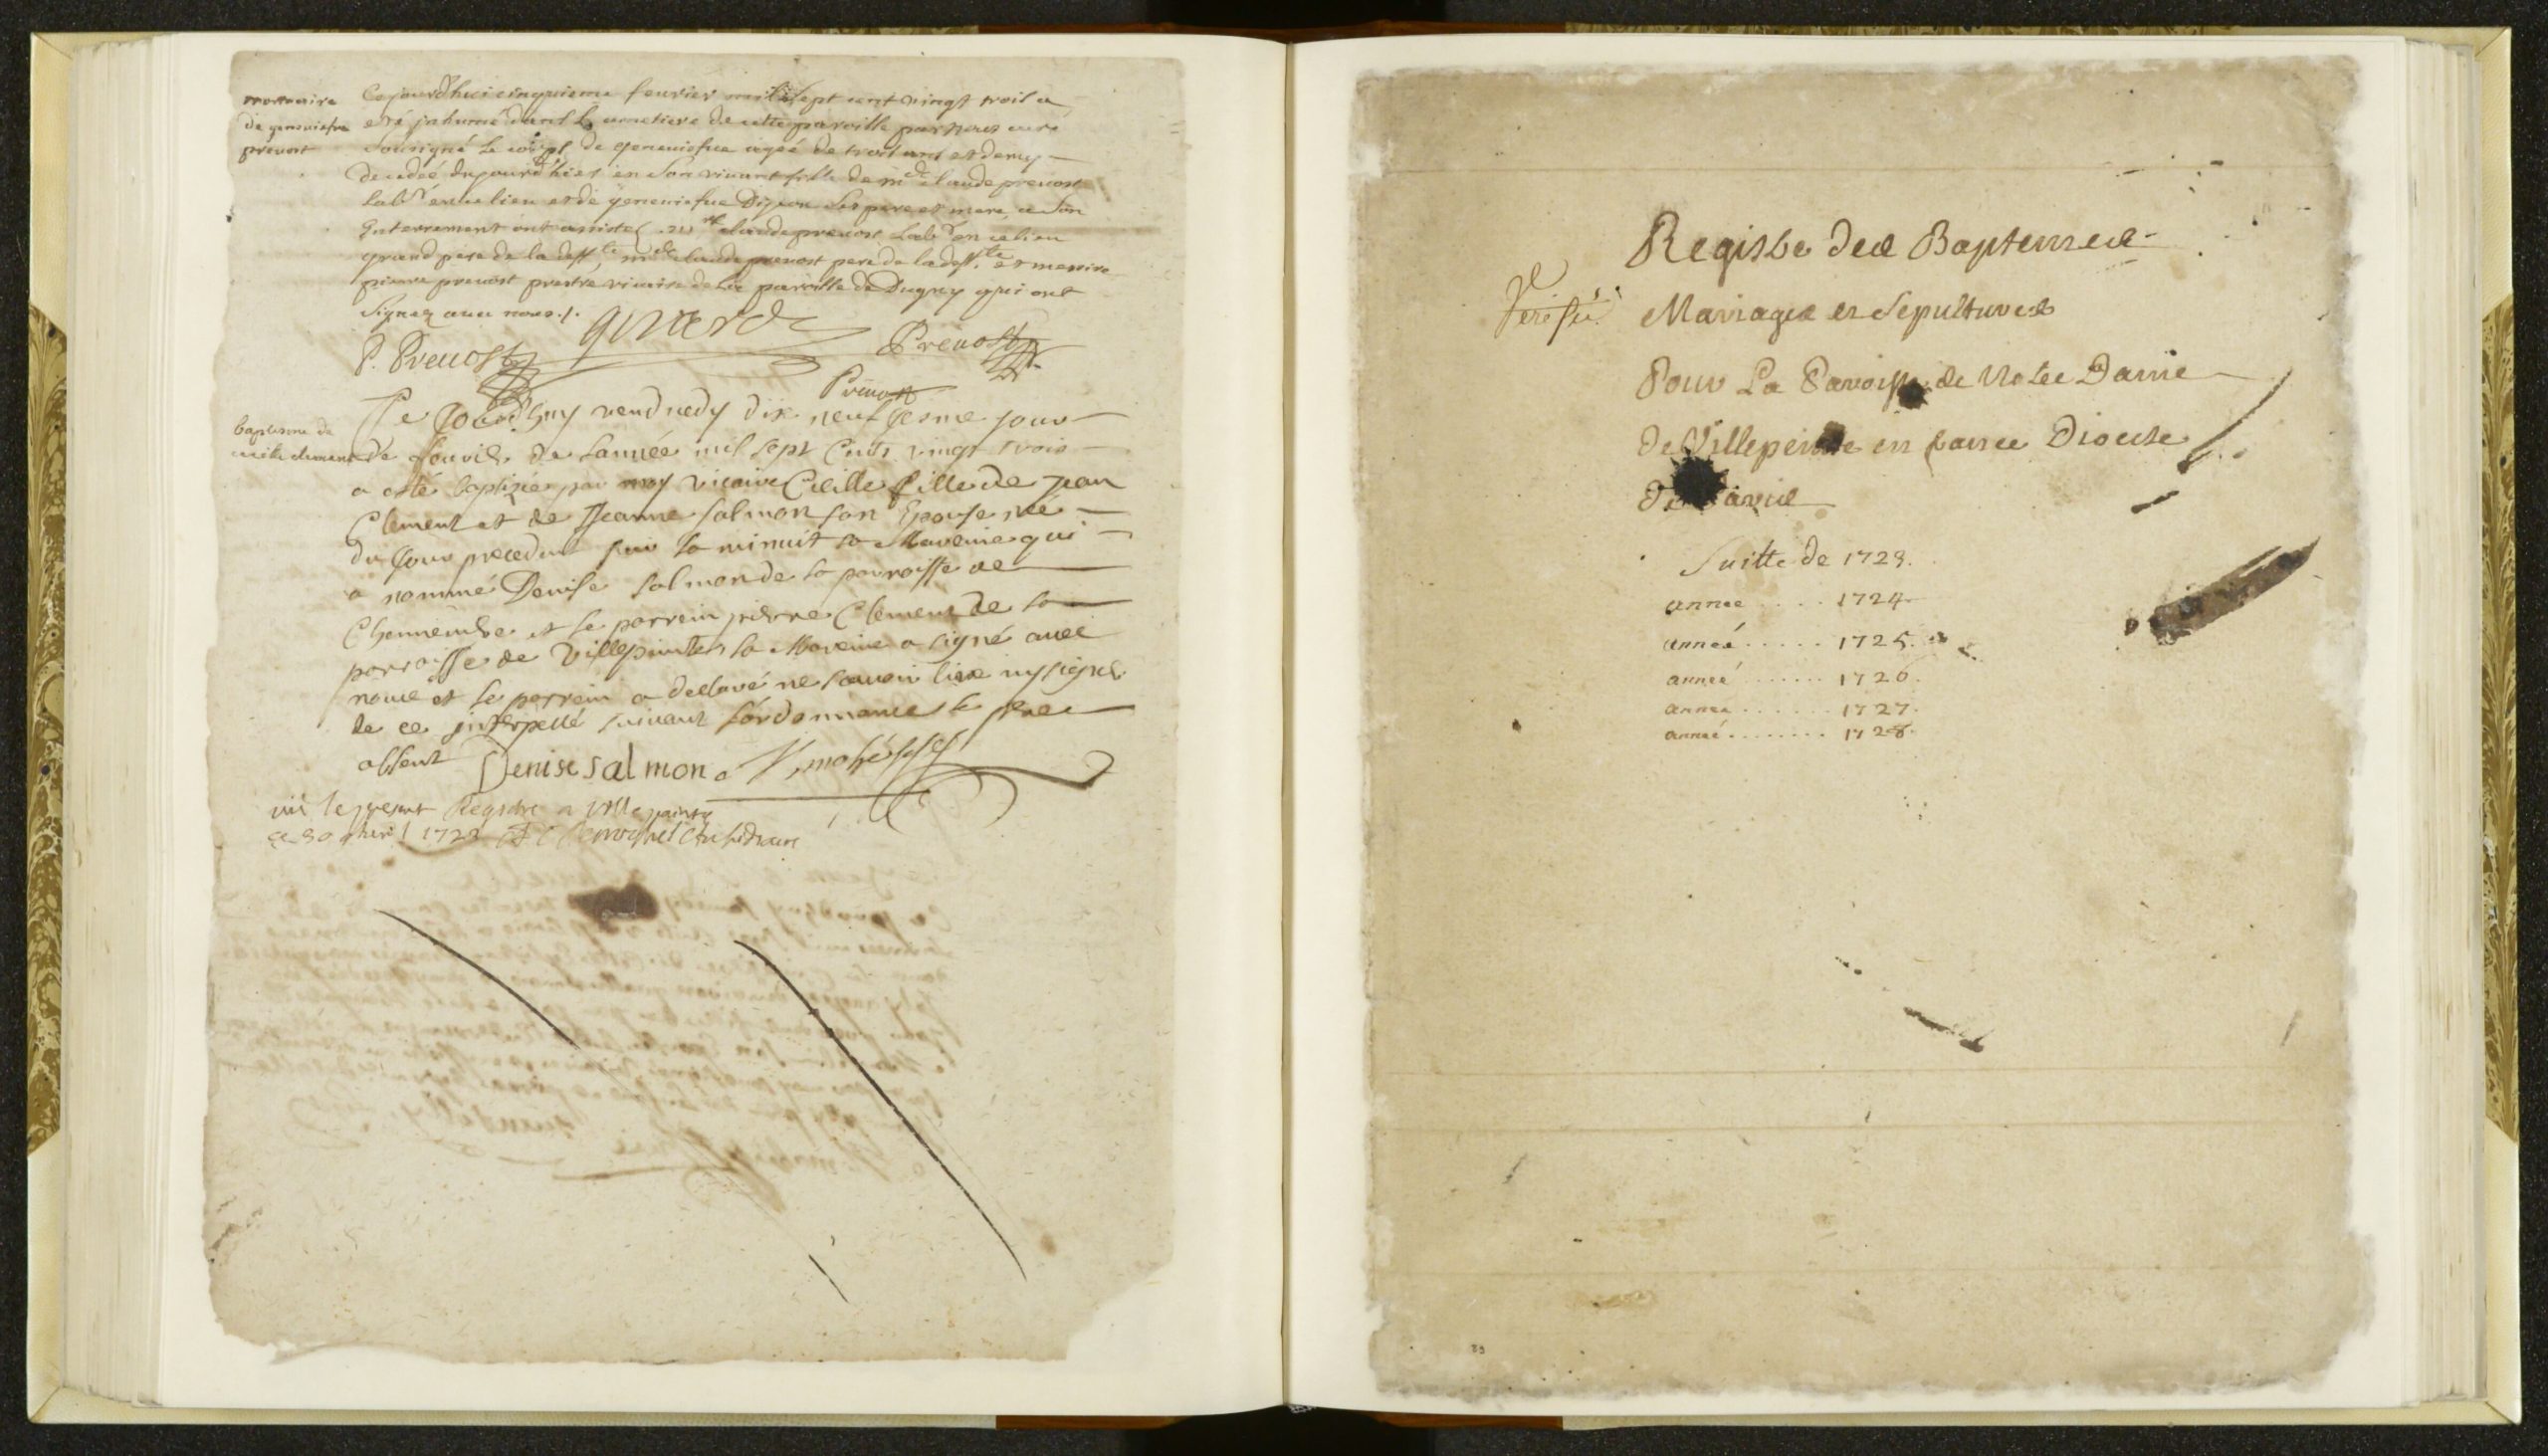 mortuaire
de geneviefve
prevost
Cejourdhui cinquieme fevrier mil sept cent vingt trois a
esté inhumé dans le cimetiere de cette paroisse par nous curé
sousigné le corps de geneviefve ageé de trois ans et demy
decedeé dujourd'hier en son vivant fille de me claude prevost
labr en ce lieu et de geneviefve Dijeon ses pere et mere, a son
Enterrement ont assistés claude prevost labr en ce lieu
grand pere de la deffte claude prevost pere de la deffte et messire
pierre prevost prestre vicaire de la paroisse de Dugny qui ont
signez avec nous ./.
P. Prevost
Prevost
Prevost
baptesme de
cecile clement
Ce Jourdhuy vendredy dix neufiesme jour
de fevrier de Lannée mil sept Cents vingt trois
a esté baptizée par moy vicaire Cecille fille de jean
Clement et de Jeanne salmon son Epouse née
du jour precedent sur la minuit la Mareine qui
a nommé Denise salmon de la parroisse de
Chennevieres et le parrein pierre Clement de la
parroisse de Villepeinte la Mareine a signé avec
nous et le parrein a declaré ne scavoir lire ny signer
de ce interpellé suivant l'ordonnance le pere
absent
Denise salmon
vu le present Registre a Villepainte
ce 30 1723
Registre des Baptemes
Verifié
Mariages et Sepultures
Pour La Paroisse de Notre Dame
De Villepeinte en france Diocese
De Paris
Suitte de 1723.
année .... 1724
année ..... 1725.
année ....... 1726.
année ...... 1727.
année ........ 1728.
29